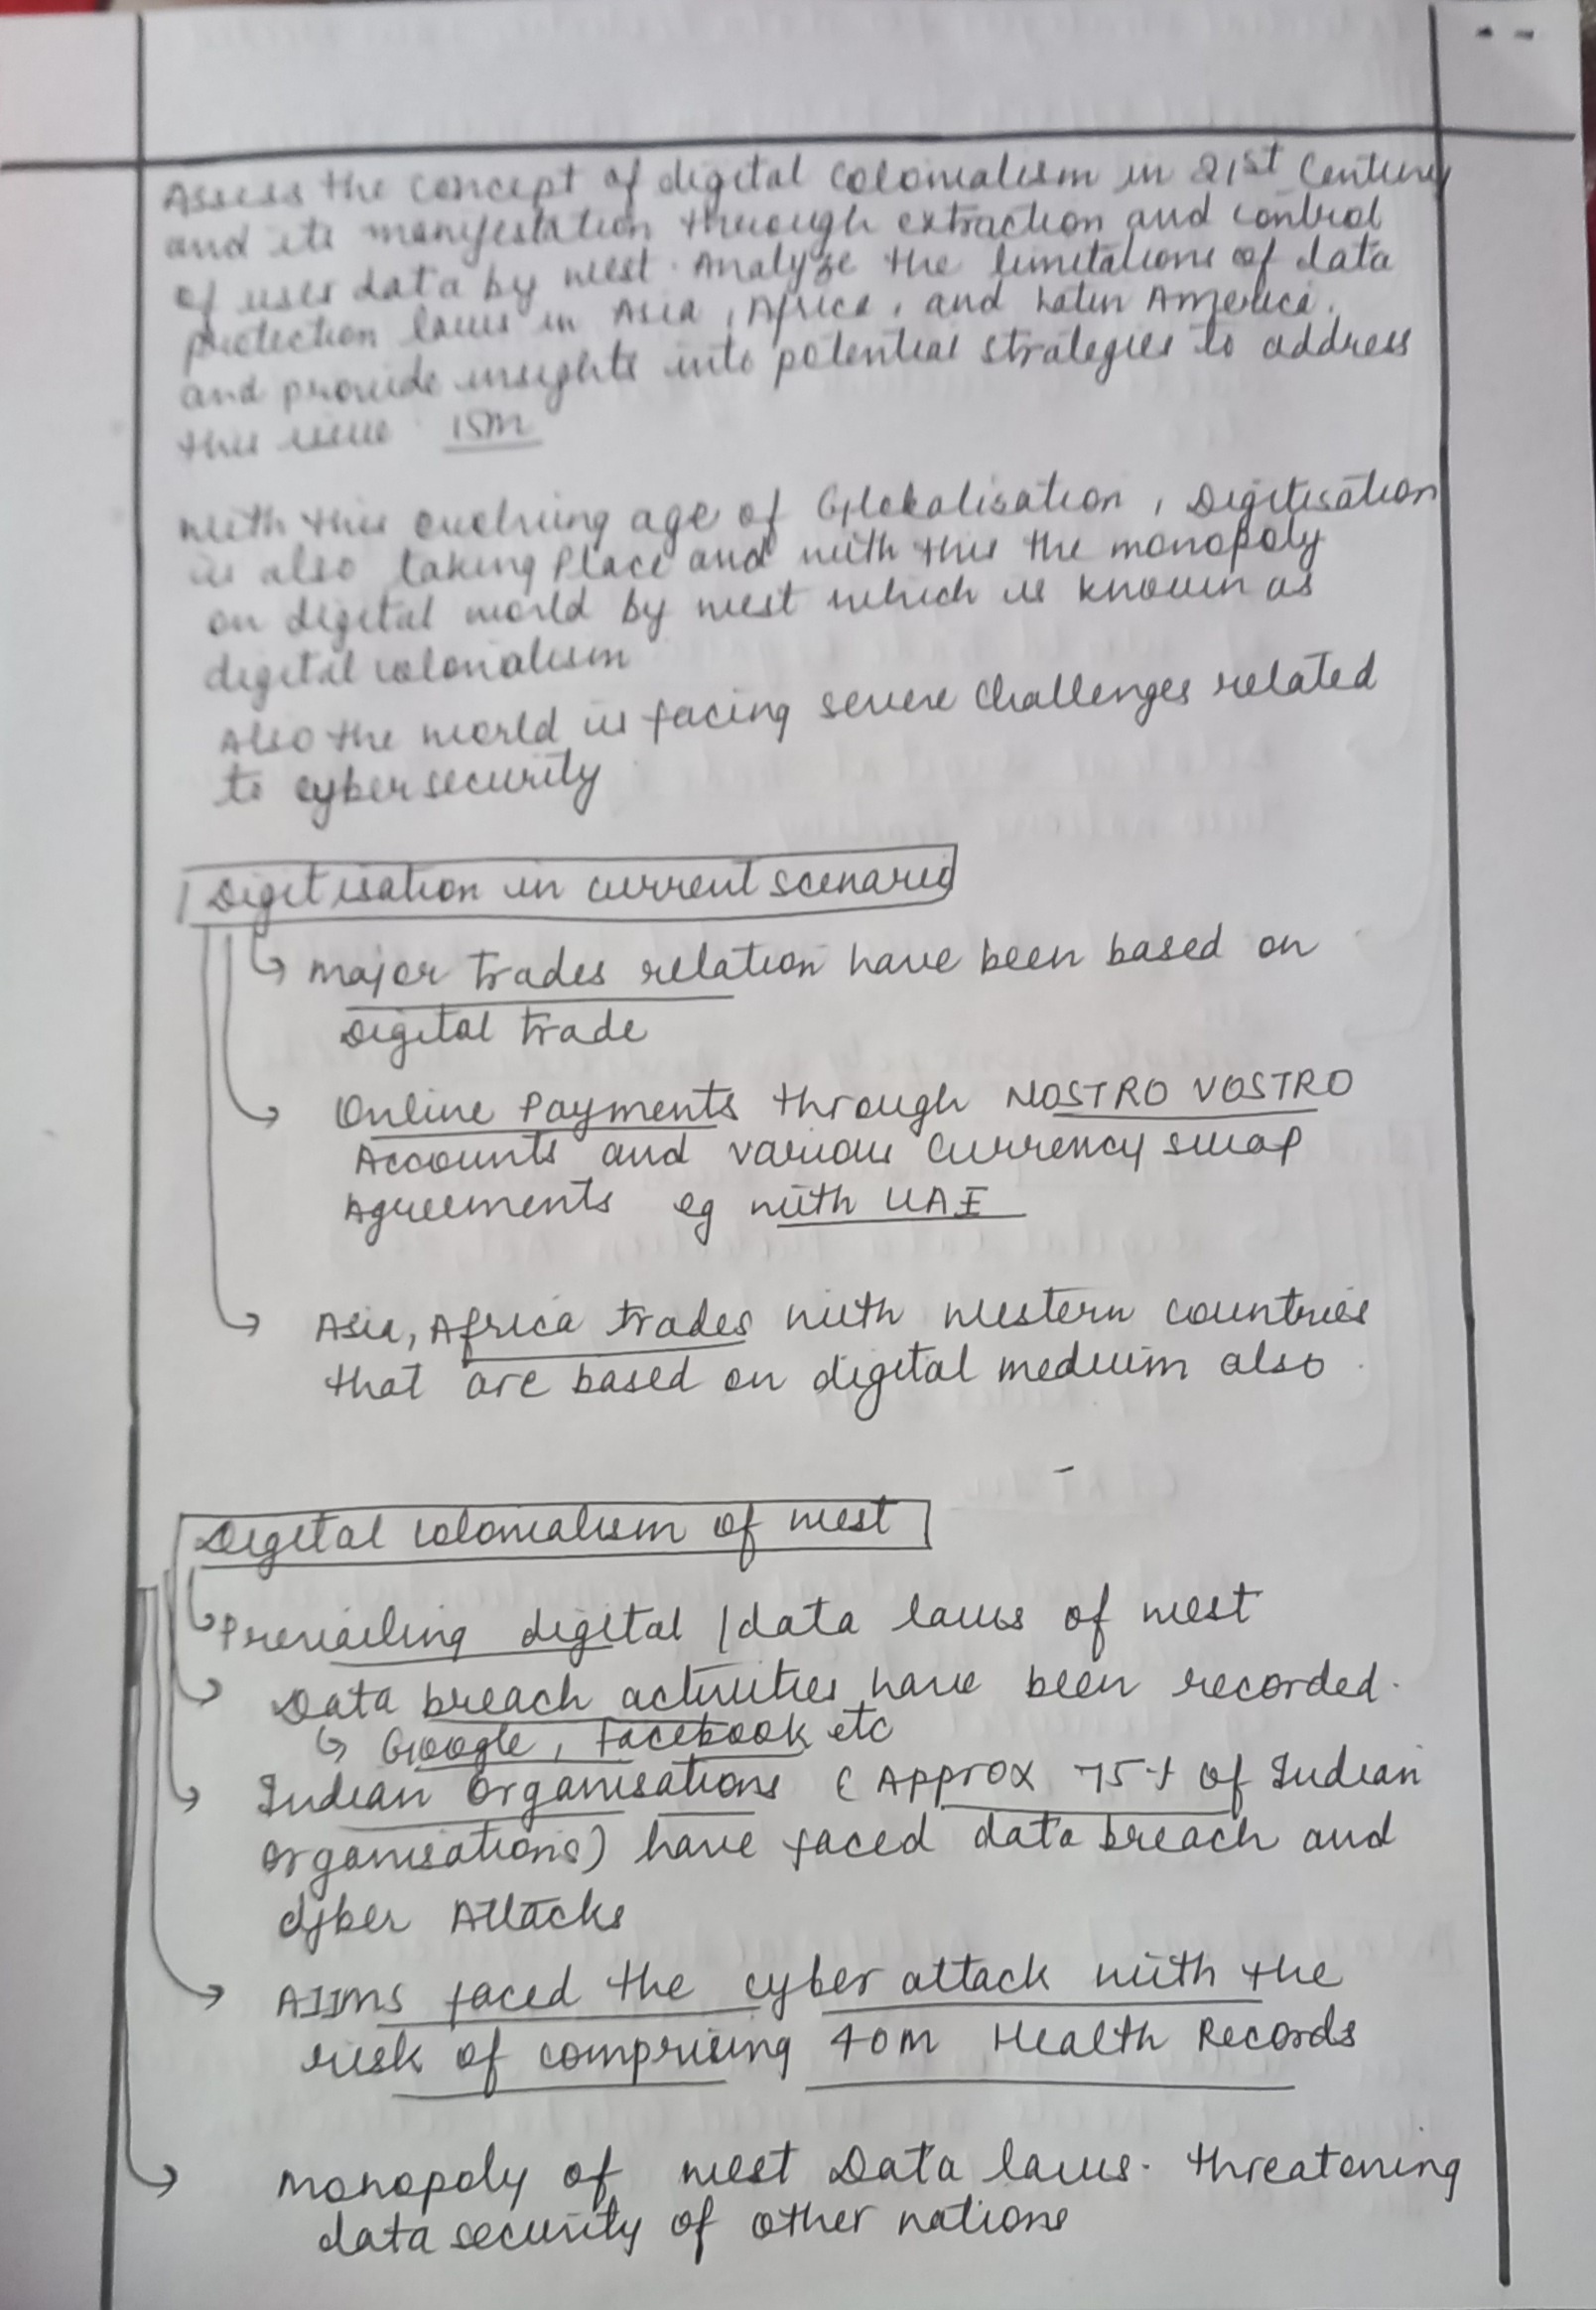 Assess the concept of digital colonialism in 21st Century
and its manifestation through extraction and control
of user data by west. Analyze the limitations of data
protection laws in Asia, Africa, and Latin America.
and provide insights into potential strategies to address
this issue 15M
with this evolving age of Globalisation, Digitisation
is also taking Place and with this the monopoly
on digital world by west which is known as
digital colonialism
Also the world is facing severe challenges related
to cyber security
Digitisation in current scenario
major trades relation have been based on
Digital trade
Online Payments through NOSTRO VOSTRO
Accounts and various currency swap
Agreements eg with UAE
Asia, Africa trades with western countries
that are based on digital medium also
Digital colonialism of west
Prevailing digital / data laws of west
Data breach activities have been recorded.
Google, Facebook etc
Indian organisations (Approx 75% of Indian
organisations) have faced data breach and
cyber Attacks
AIIMS faced the cyber attack with the
risk of comprising 40m Health Records
monopoly of west Data laws. threatening
data security of other nations